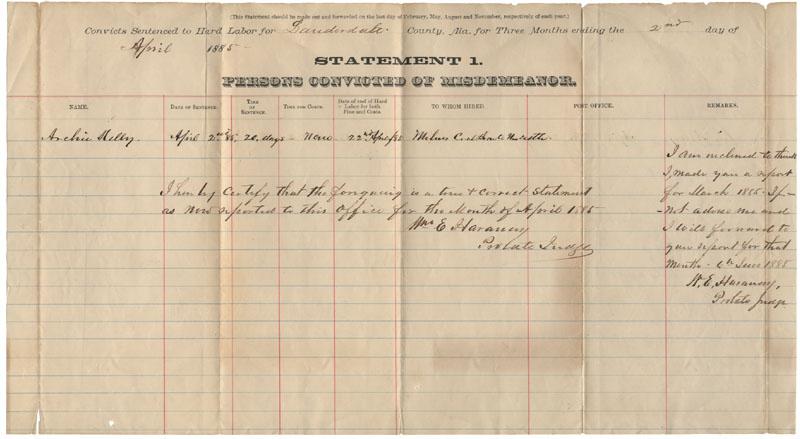 (This Statement should be made out and forwarded on the last day of February, May, August and November, respectively of each year.)
Convicts Sentenced to Hard Labor for Lauderdale County, Ala. for Three Months ending the 2nd day of
April 1885
STATEMENT 1.
PERSONS CONVICTED OF MISDEMEANOR.
NAME. DATE OF SENTENCE. TIME OF SENTENCE. TIME FOR COSTS. Date of end of Hard Labor for both Fine and Costs. TO WHOM HIRED. POST OFFICE. REMARKS.
Archie Kelly April 2nd 85, 20 days 22nd April/85
I am inclined to think
I made you a report
for March 1885 - If
not advise me and
I will forward to
your report for that
Month - 6th June 1885
W. E. Haraway,
Probate Judge
I hereby Certify that the foregoing is a true & Correct Statement
as now reported to this Office for the Month of April 1885
Wm E Haraway
Probate Judge